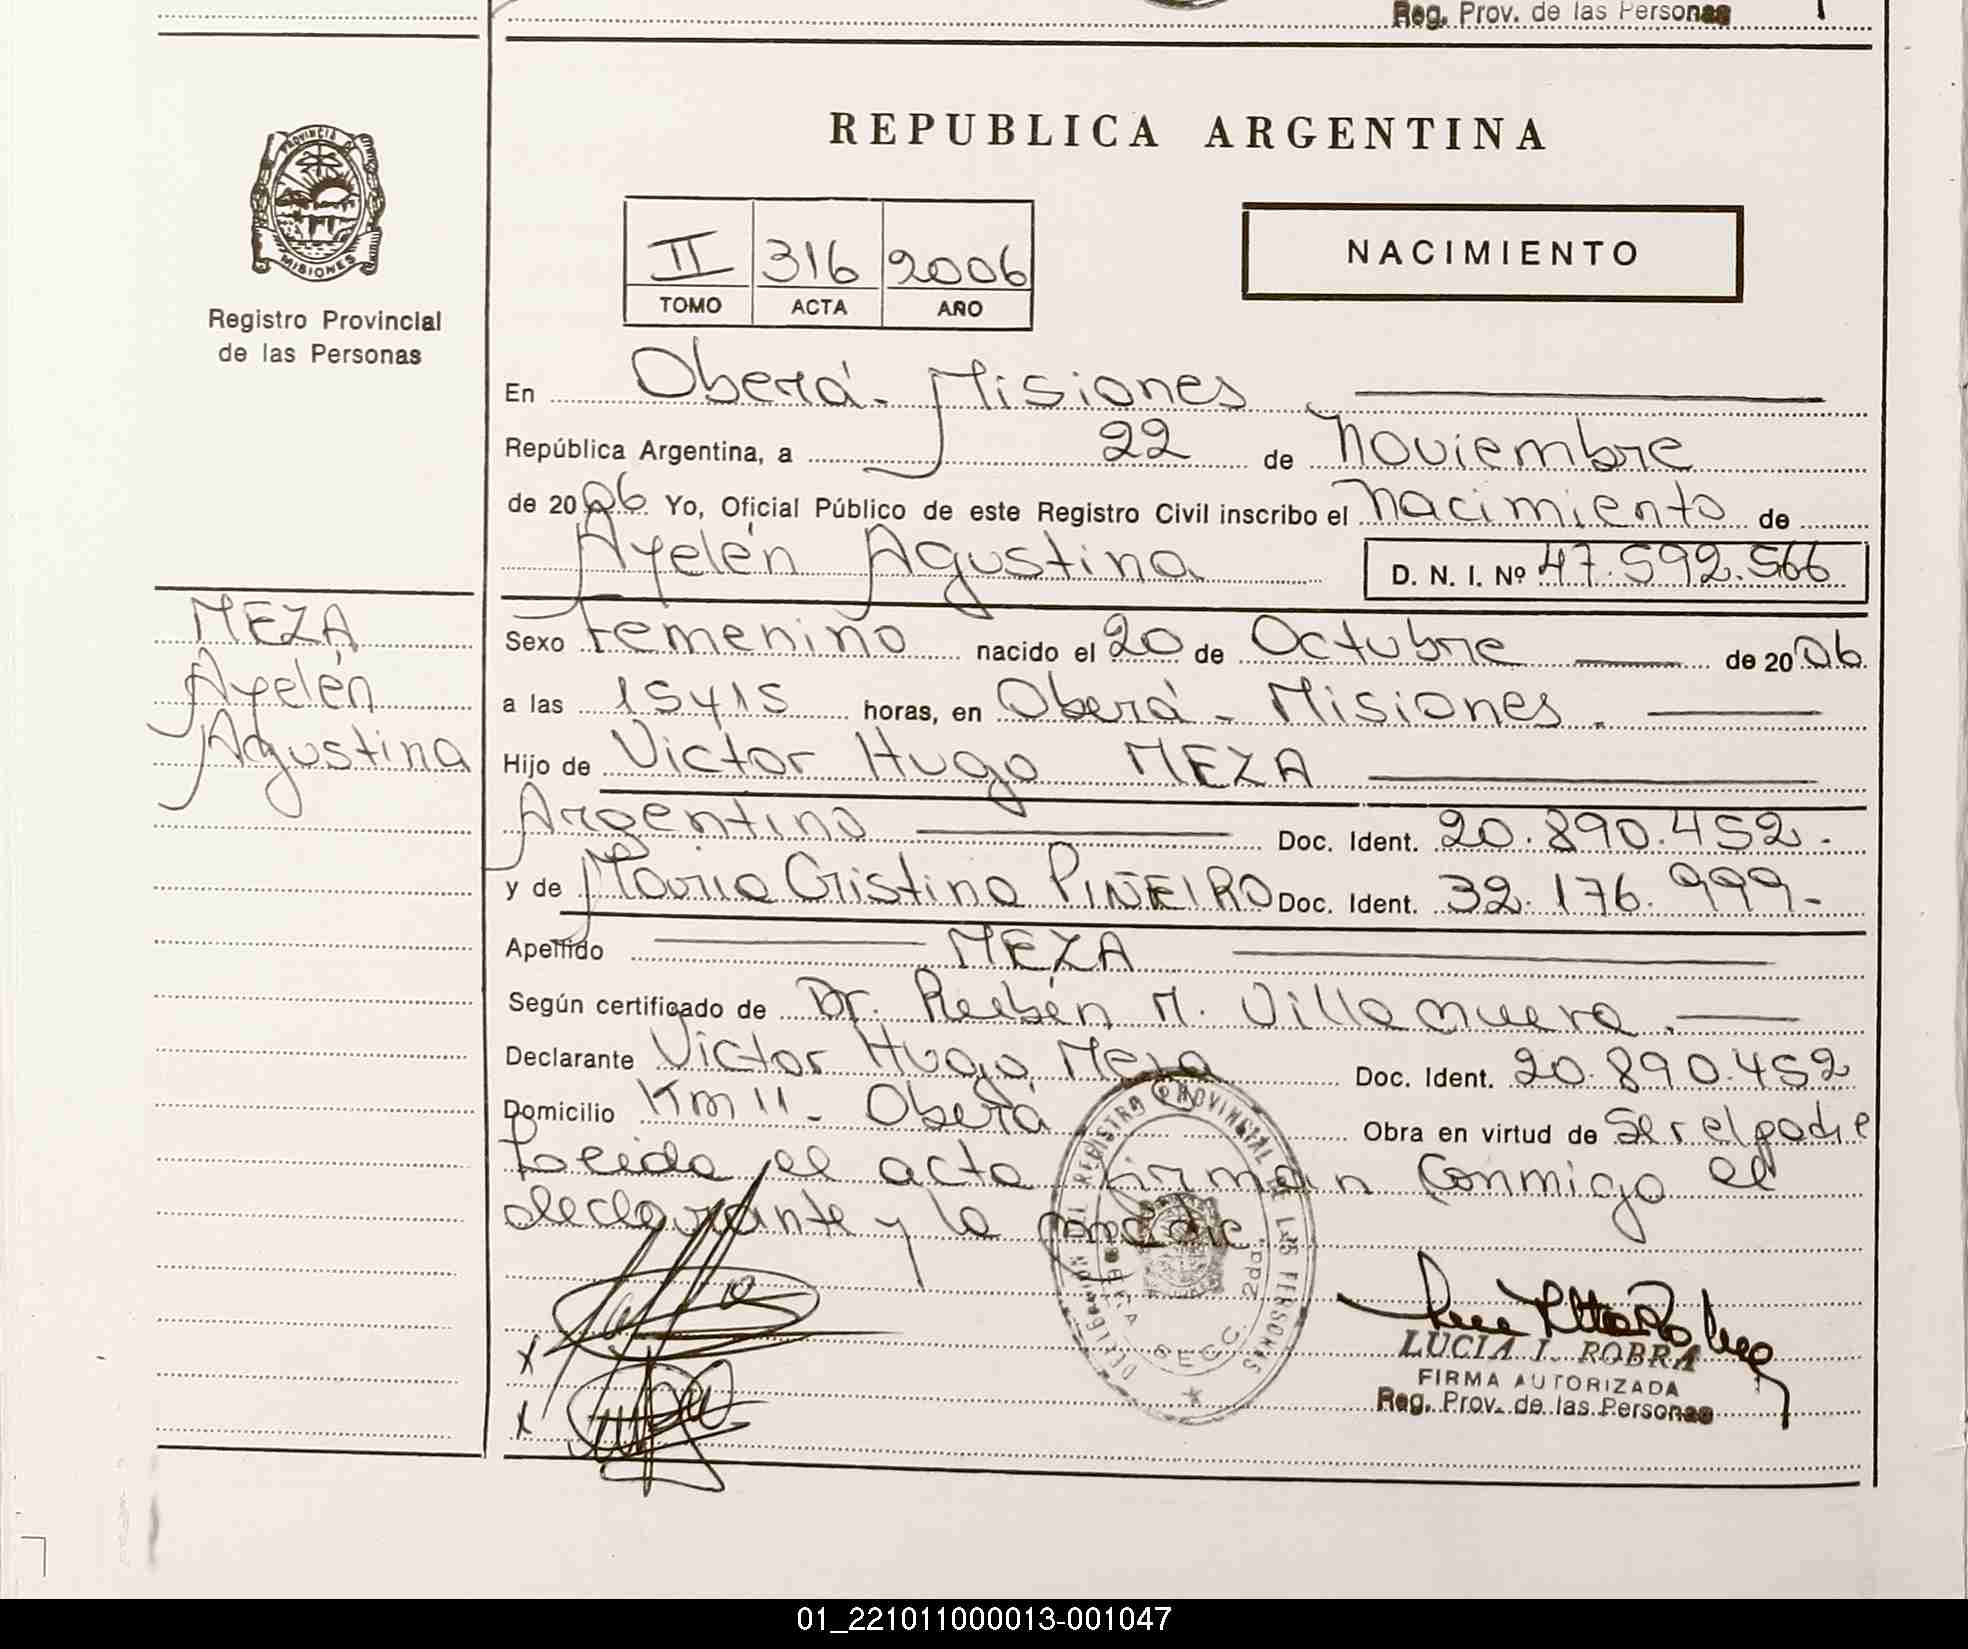 Reg. Prov. de las Personas
PROVINCIA DE
MISIONES
Registro Provincial
de las Personas
REPUBLICA ARGENTINA
II 316 2006
TOMO ACTA AÑO
NACIMIENTO
En Oberá - Misiones
República Argentina, a 22 de Noviembre
de 2006 Yo, Oficial Público de este Registro Civil inscribo el Nacimiento de
Ayelén Agustina D. N. I. Nº 47.592.566
MEZA
Ayelén
Agustina
Sexo Femenino nacido el 20 de Octubre de 2006
a las 15y15 horas, en Oberá - Misiones.
Hijo de Victor Hugo MEZA
Argentino Doc. Ident. 20.890.452.-
y de Maria Cristina PIÑEIRO Doc. Ident. 32.176.999.-
Apellido MEZA
Según certificado de Dr. Rubén M. Villanueva.
Declarante Victor Hugo Meza Doc. Ident. 20.890.452
Domicilio Km 11 - Oberá Obra en virtud de ser el padre
Leida el acta firman conmigo el
declarante y la madre.
REGISTRO PROVINCIAL DE LAS PERSONAS
x
x
LUCIA I. ROBRA
FIRMA AUTORIZADA
Reg. Prov. de las Personas
01_221011000013-001047